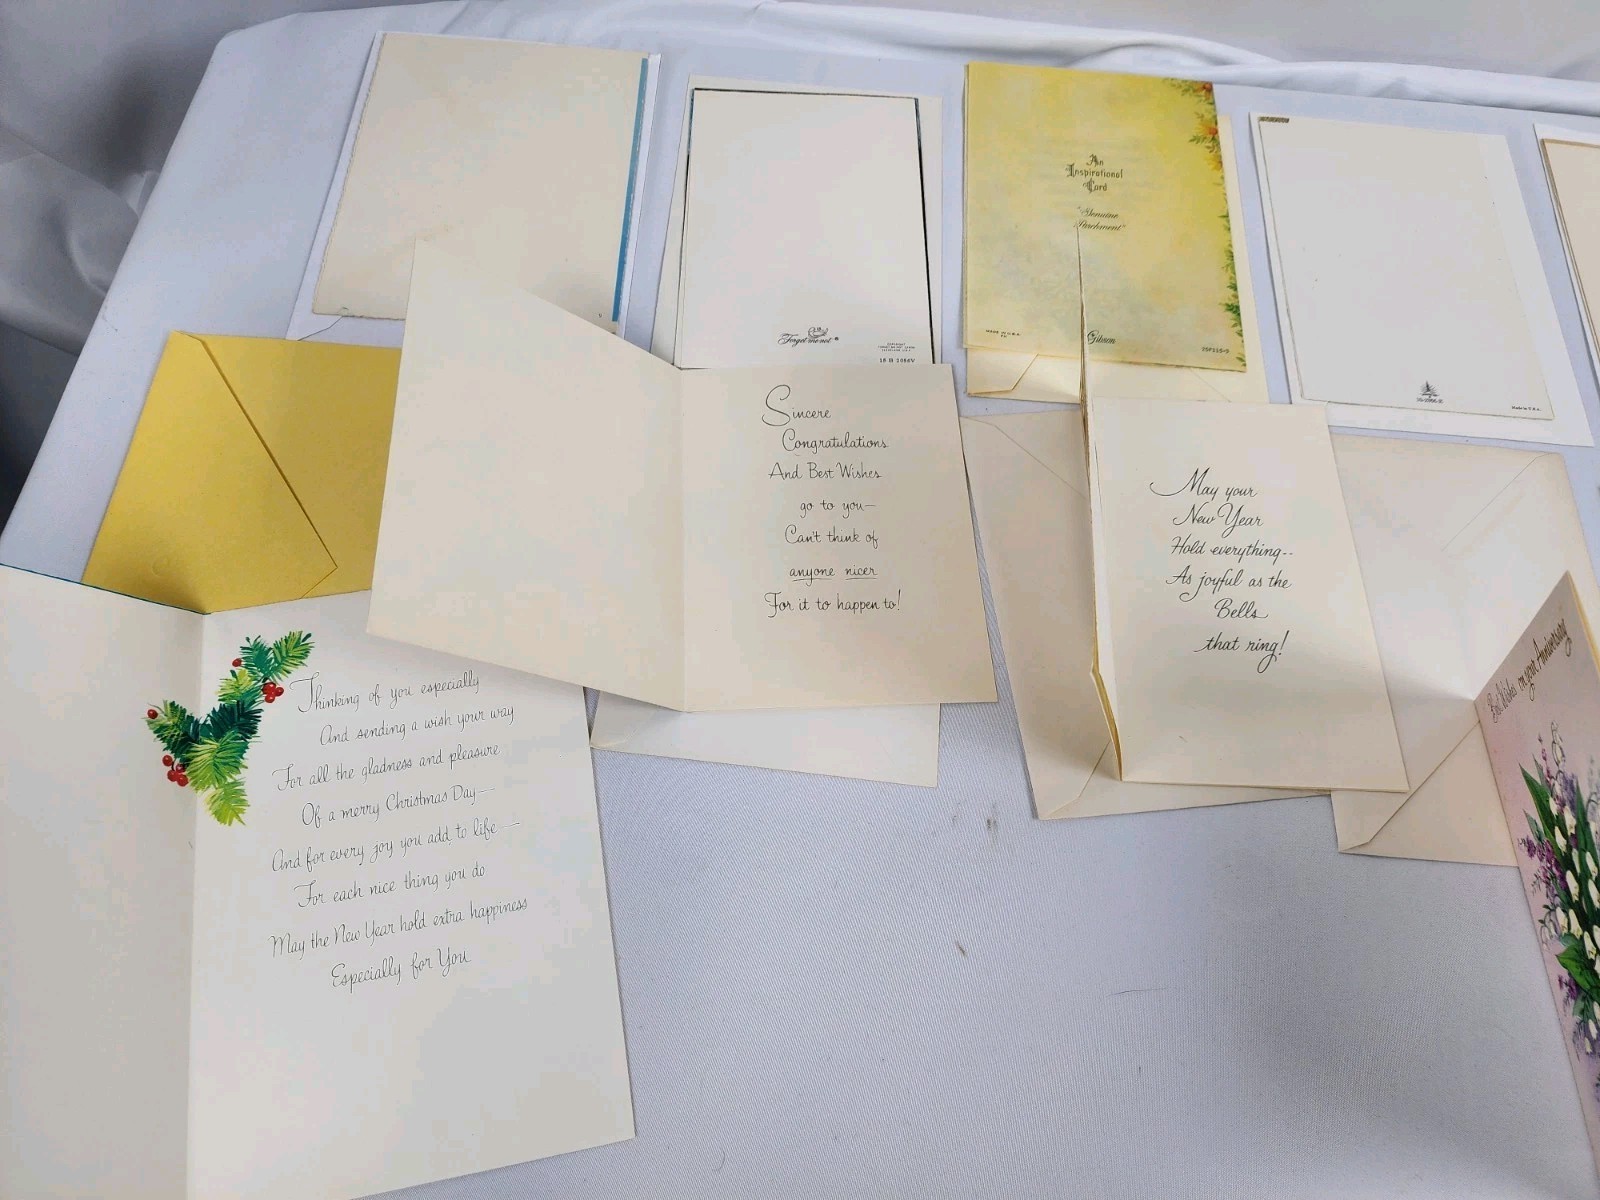 Forget me not
An
Inspirational
Card
"Genuine
Parchment"
MADE IN U.S.A.
Gibson
Made in U.S.A.
Sincere
Congratulations
And Best Wishes
go to you—
Can't think of
anyone nicer
For it to happen to!
May your
New Year
Hold everything--
As joyful as the
Bells
that ring!
Best Wishes on your Anniversary
Thinking of you especially
And sending a wish your way
For all the gladness and pleasure
Of a merry Christmas Day—
And for every joy you add to life—
For each nice thing you do
May the New Year hold extra happiness
Especially for You